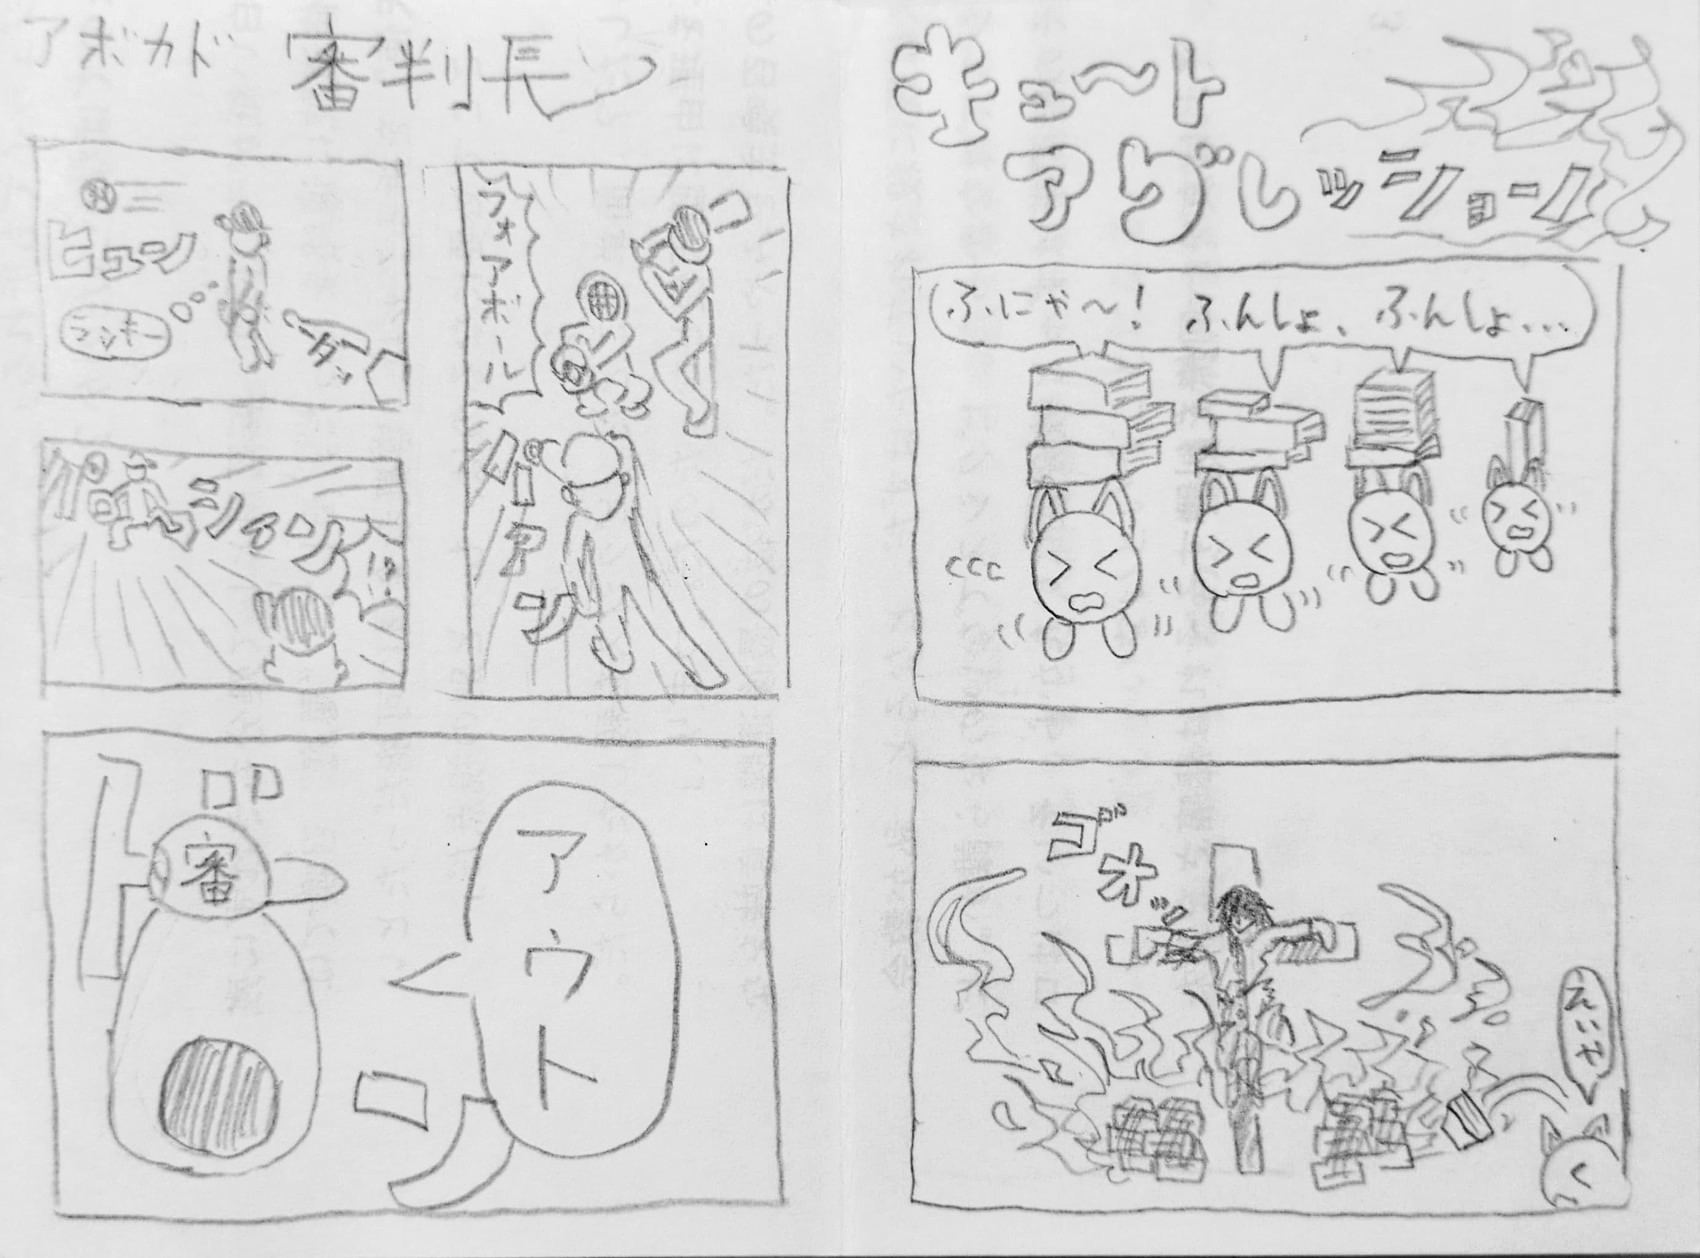 アボカド 審判長
フォアボール
ローアン
ヒュン
ラッキー
ダッ
バシィン
!?
ドロン
審
アウト
キュ〜ト
アグレッション
ふにゃ〜! ふんしょ、ふんしょ...
ゴオッ
えいや